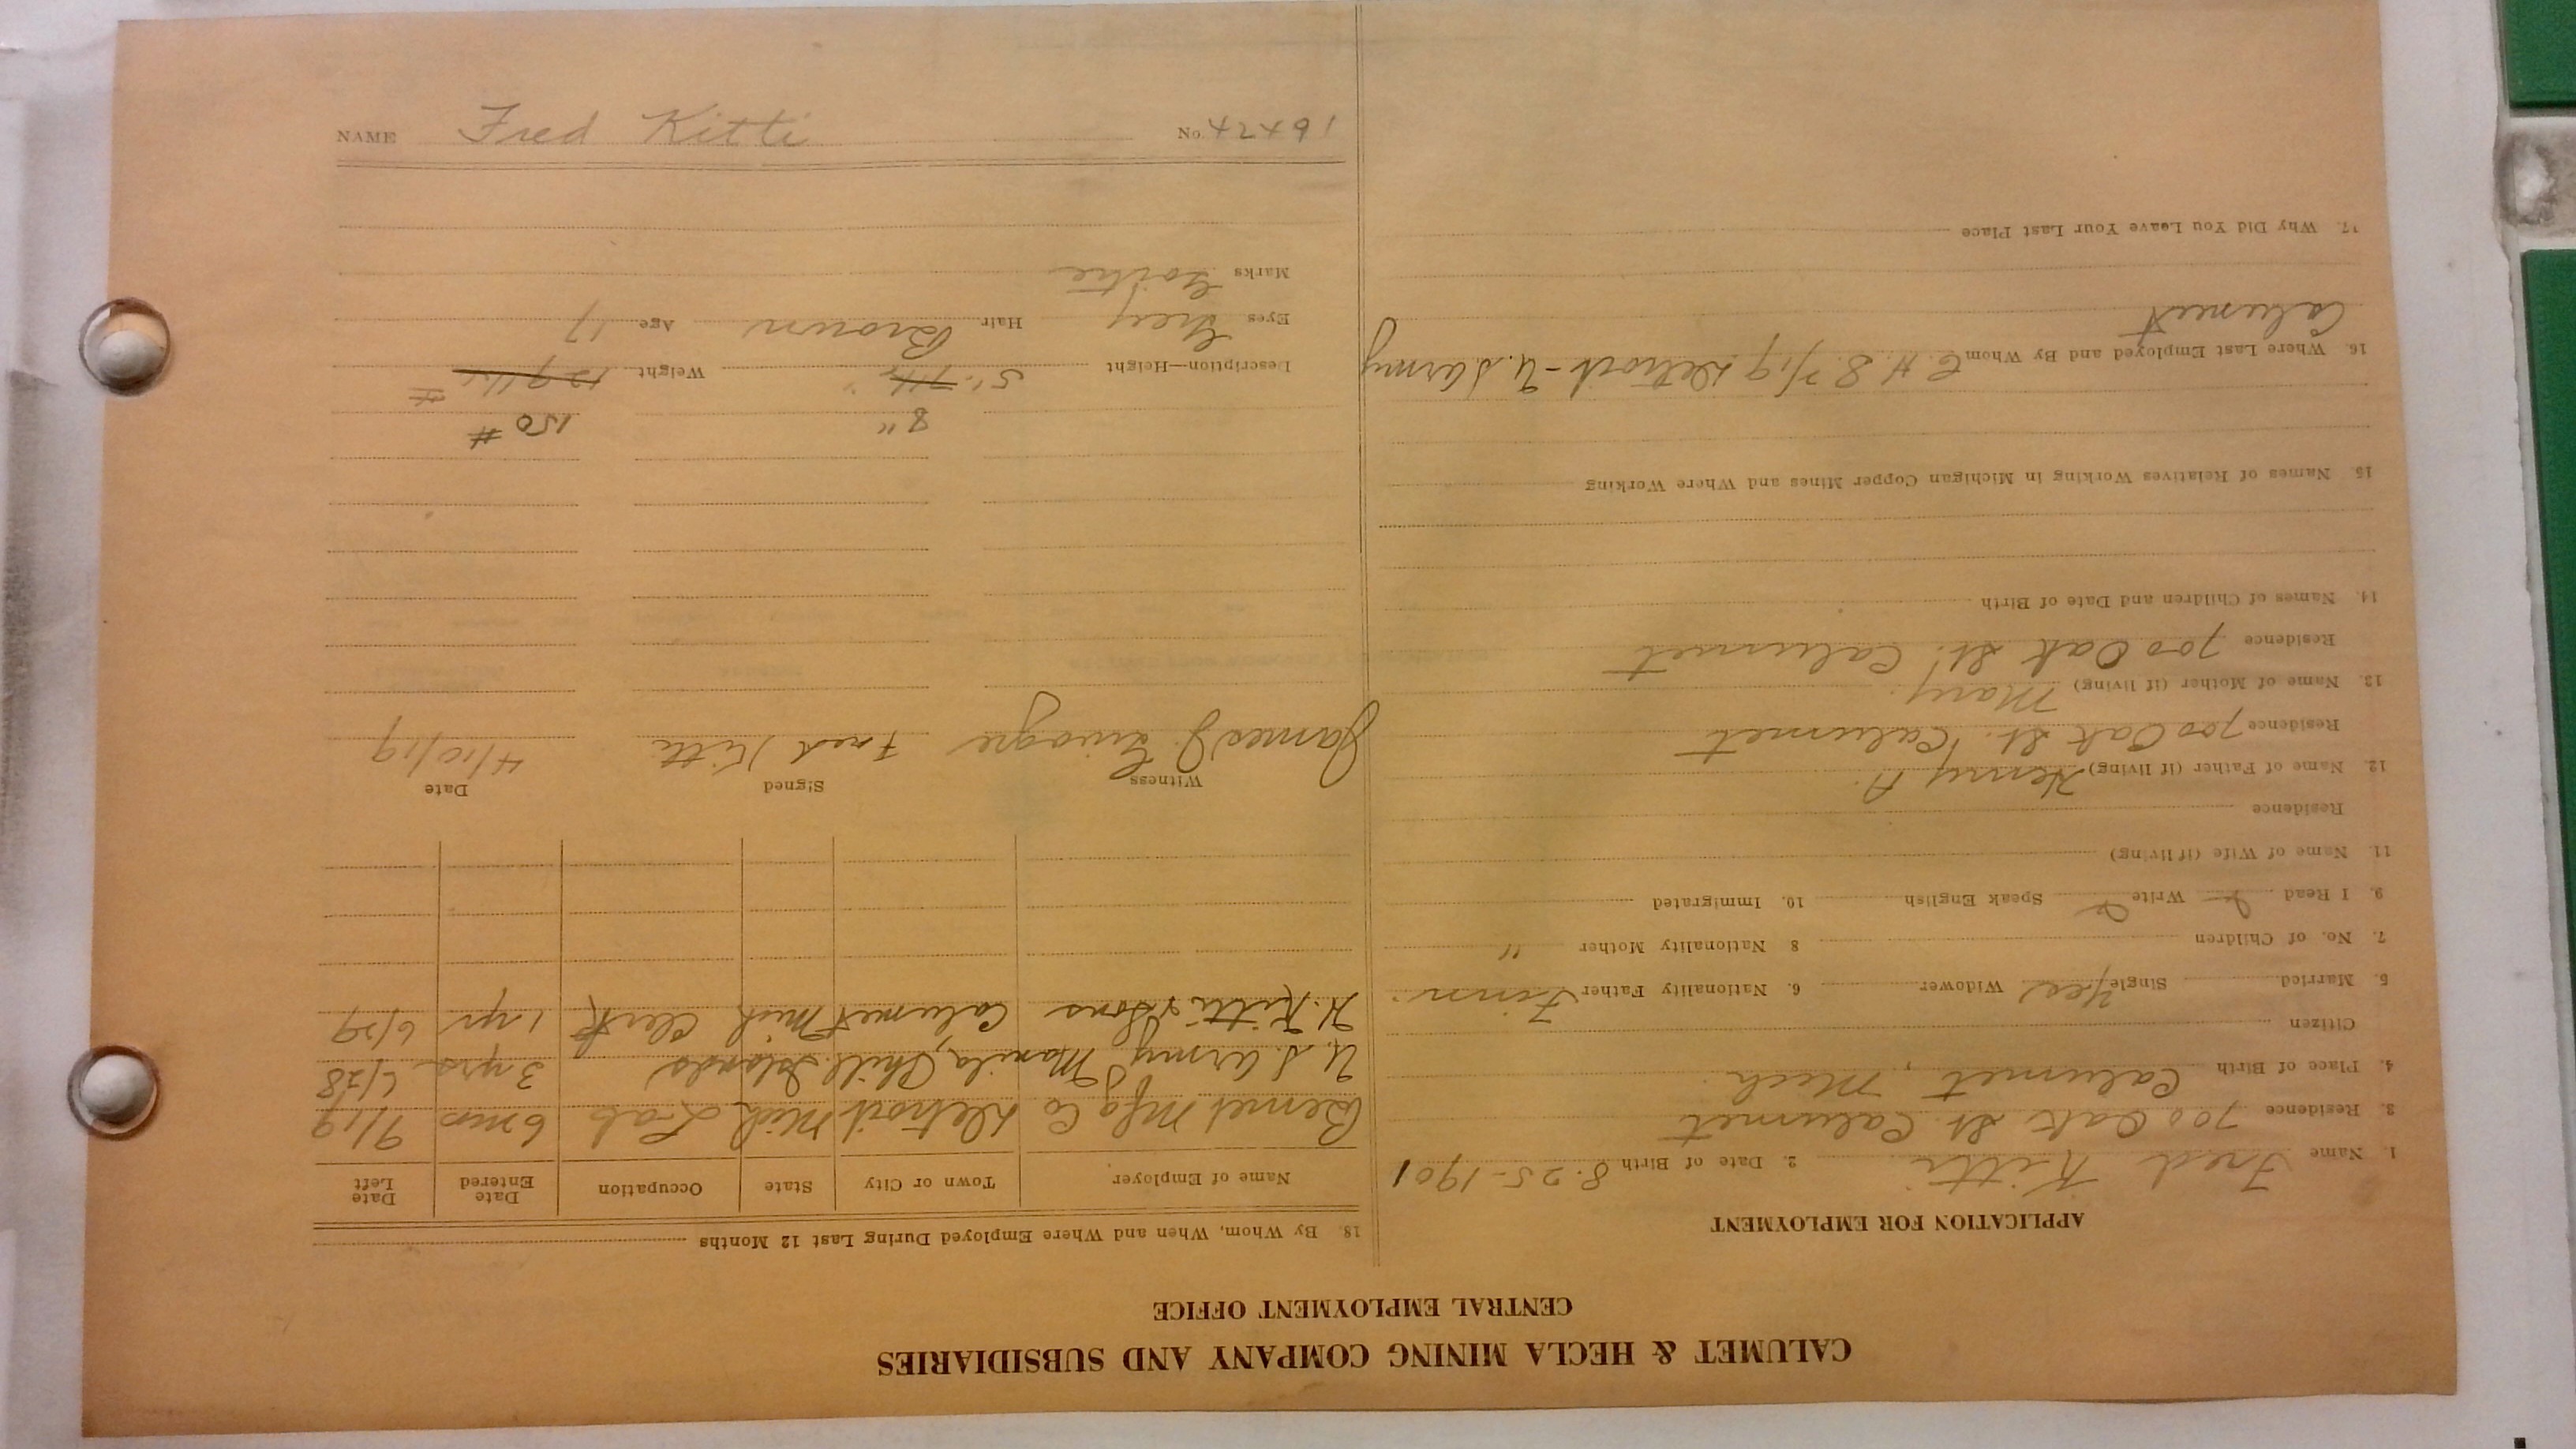 CALUMET & HECLA MINING COMPANY AND SUBSIDIARIES
CENTRAL EMPLOYMENT OFFICE
APPLICATION FOR EMPLOYMENT
1. Name Fred Kitti 2. Date of Birth 8-25-1901
3. Residence 700 Oak St. Calumet
4. Place of Birth Calumet, Mich.
Citizen
5. Married Single Yes Widower 6. Nationality Father Finn
7. No. of Children 8 Nationality Mother "
9. I Read Write Speak English 10. Immigrated
11. Name of Wife (if living)
Residence
12. Name of Father (if living) Henry A.
Residence 700 Oak St. Calumet
13. Name of Mother (if living) Mary
Residence 700 Oak St. Calumet
14. Names of Children and Date of Birth
15. Names of Relatives Working in Michigan Copper Mines and Where Working
16. Where Last Employed and By Whom C. H. S. 7/19 Detroit - U. S. Army
Calumet
17. Why Did You Leave Your Last Place
18. By Whom, When and Where Employed During Last 12 Months
Name of Employer Town or City State Occupation Date Entered Date Left
Mfg Co Detroit Mich Lab 6 mos 9/19
U. S. Army Manila, Phill. Islands 3 yrs 6/28
H. Kitti & Sons Calumet Mich Clerk 1 yr 6/29
Witness Signed Date
James J. Fred Kitti 4/10/19
8" 150 #
Description—Height 5' 7 1/2" Weight 129 1/2 #
Eyes Grey Hair Brown Age 17
Marks Goitre
NAME Fred Kitti No. 42491